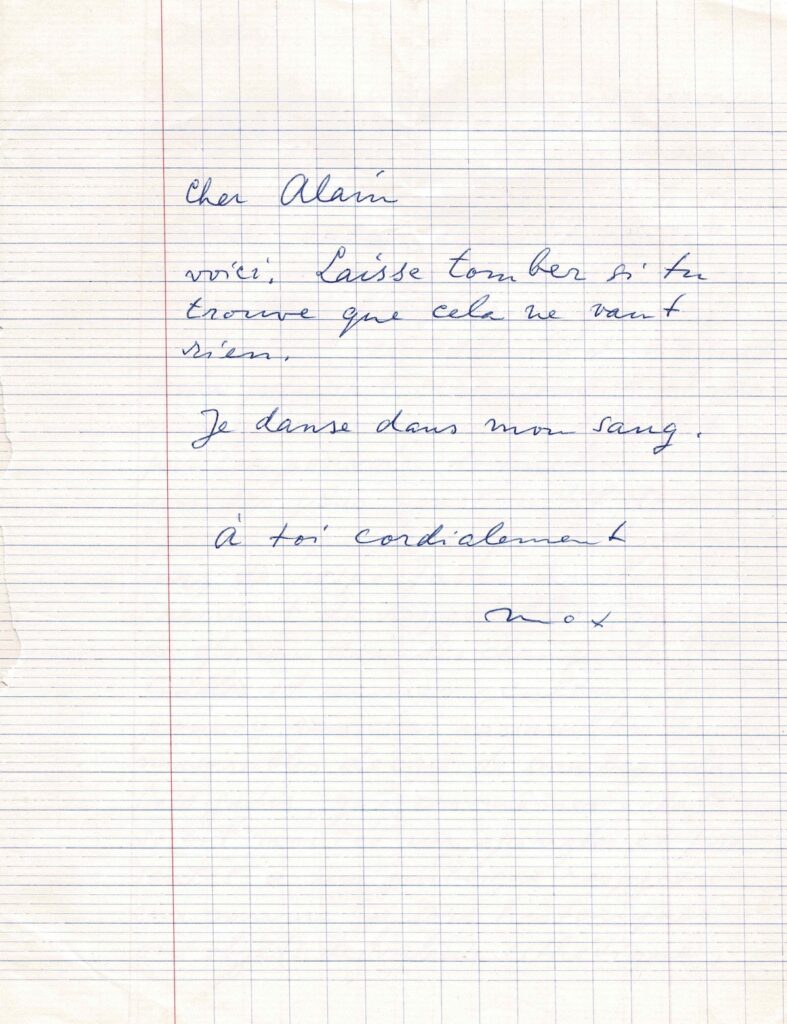 Cher Alain
voici. Laisse tomber si tu
trouve que cela ne vaut
rien.
Je danse dans mon sang.
À toi cordialement